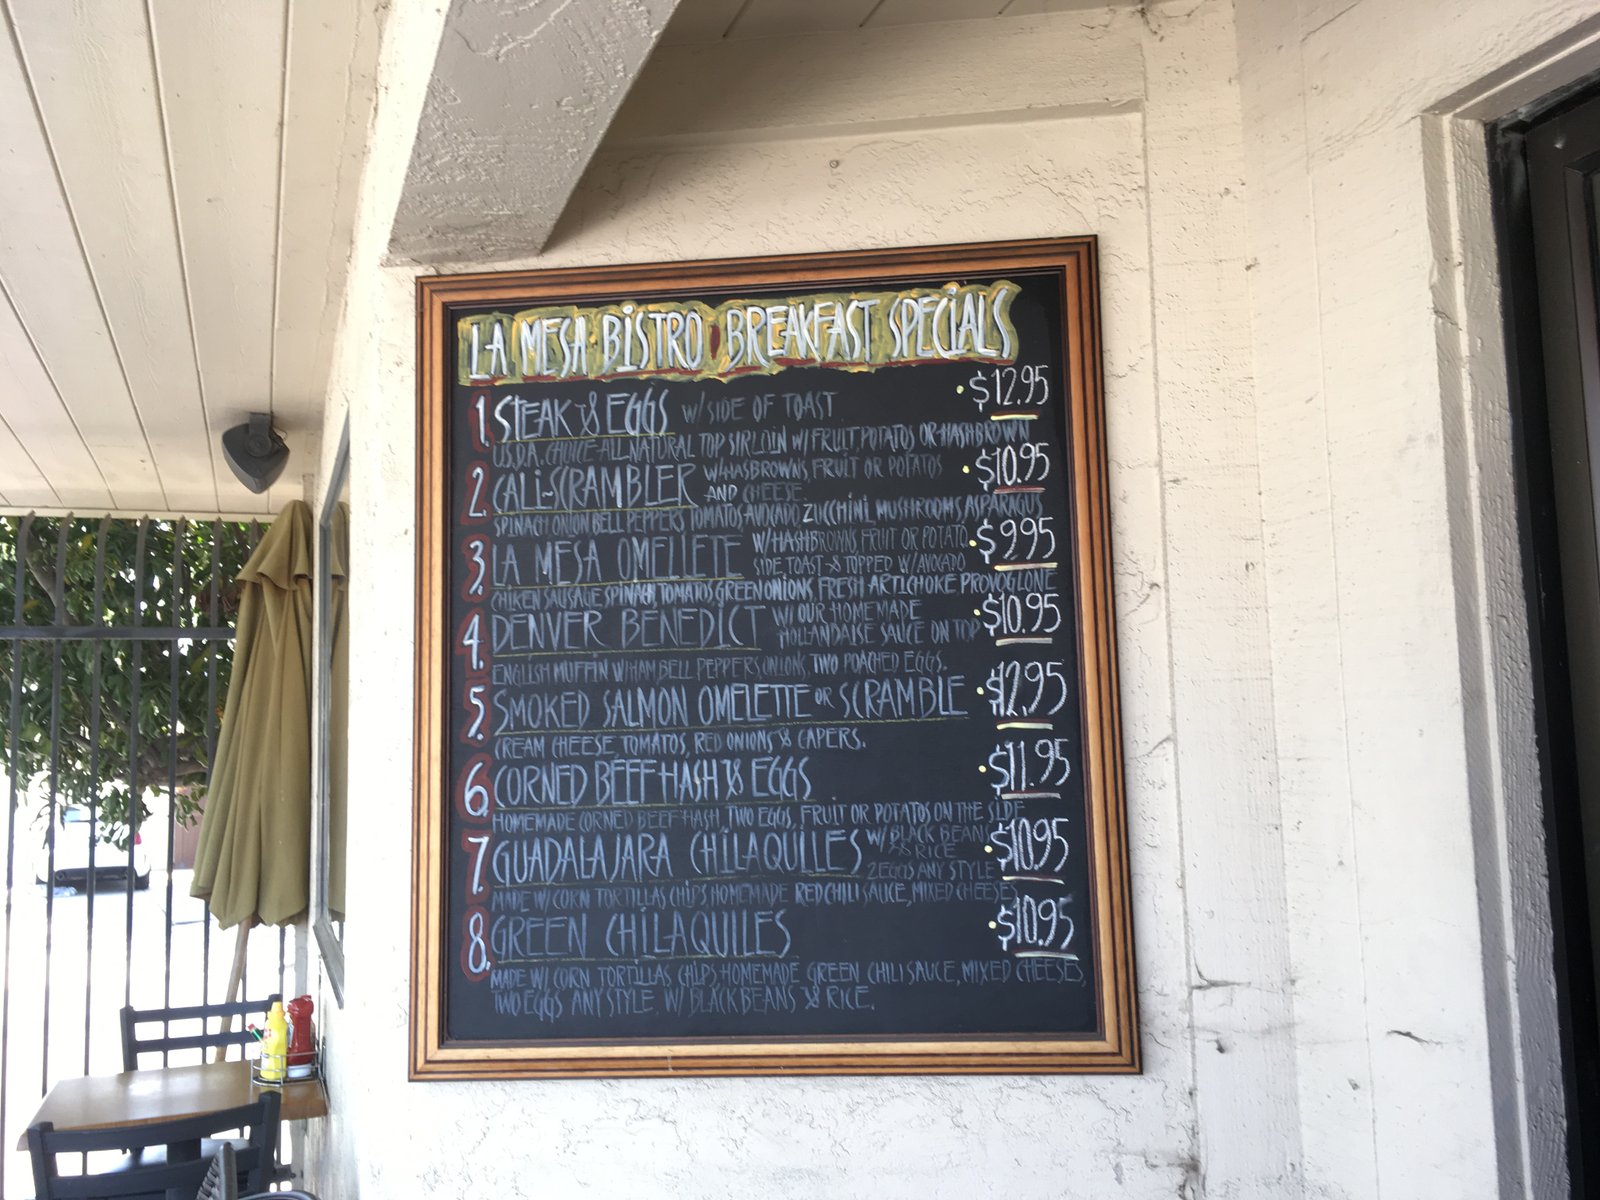 LA MESA BISTRO BREAKFAST SPECIALS
1. STEAK & EGGS W/ SIDE OF TOAST $12.95
U.S.D.A. CHOICE-ALL NATURAL TOP SIRLOIN W/ FRUIT, POTATOS OR HASHBROWN
2. CALI-SCRAMBLER W/HASBROWNS, FRUIT OR POTATOS $10.95
AND CHEESE.
SPINACH ONION BELL PEPPERS TOMATOS AVOCADO, ZUCCHINI, MUSHROOMS, ASPARAGUS
3. LA MESA OMELLETE W/HASHBROWNS, FRUIT OR POTATO $9.95
SIDE TOAST & TOPPED W/ AVOCADO
CHIKEN SAUSAGE, SPINACH, TOMATOS, GREEN ONIONS, FRESH ARTICHOKE PROVOGLONE
4. DENVER BENEDICT W/ OUR HOMEMADE $10.95
HOLLANDAISE SAUCE ON TOP
ENGLISH MUFFIN W/HAM, BELL PEPPERS, ONIONS, TWO POACHED EGGS.
5. SMOKED SALMON OMELETTE OR SCRAMBLE $12.95
CREAM CHEESE, TOMATOS, RED ONIONS & CAPERS.
6. CORNED BEEF HASH & EGGS $11.95
HOMEMADE CORNED BEEF HASH, TWO EGGS, FRUIT OR POTATOS ON THE SIDE
7. GUADALAJARA CHILAQUILES W/ BLACK BEANS $10.95
& RICE
2 EGGS ANY STYLE
MADE W/ CORN TORTILLAS CHIPS HOMEMADE RED CHILI SAUCE, MIXED CHEESES
8. GREEN CHILAQUILES $10.95
MADE W/ CORN TORTILLAS CHIPS, HOMEMADE GREEN CHILI SAUCE, MIXED CHEESES,
TWO EGGS ANY STYLE, W/ BLACK BEANS & RICE.